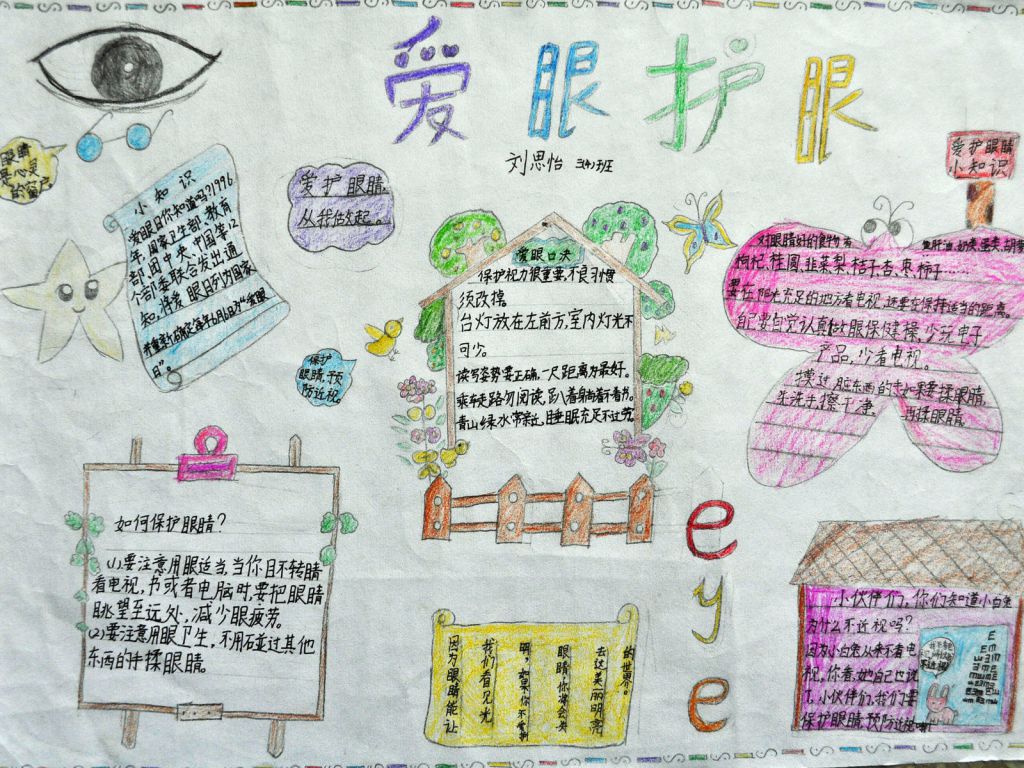 爱眼护眼
刘思怡 三(4)班
眼睛
是心灵
的窗户
小知识
爱眼日你知道吗?1996
年,国家卫生部,教育
部,团中央,中国等12
个部委联合发出通
知,将爱眼日列为国家,
并重新确定每年6月6日为“爱眼
日”。
爱护眼睛,
从我做起。
保护
眼睛,预
防近视。
爱眼口决
保护视力很重要,不良习惯
须改掉。
台灯放在左前方,室内灯光不
可少。
读写姿势要正确,一尺距离为最好。
乘车走路勿阅读,趴着身躺着不看书。
青山绿水常亲近,睡眠充足不过劳。
爱护眼睛
小知识
对眼睛好的食物有
鱼肝油,奶类,蛋类,胡萝
枸杞,桂圆,韭菜梨,桔子杏,枣,柿子……
要在阳光充足的地方看电视,还要在保持适当的距离。
自己要自觉认真地做眼保健操,少玩电子
产品,少看电视。
摸过脏东西的手如果要揉眼睛,
先洗手,擦干净,再揉眼睛。
如何保护眼睛?
(1)要注意用眼适当,当你目不转睛
看电视,书或者电脑时,要把眼睛
眺望至远处,减少眼疲劳。
(2)要注意用眼卫生,不用碰过其他
东西的手揉眼睛。
eye
因为眼睛能让
我们看见光
明,如果你不爱护
眼睛,你将会失
去这美丽明亮
的世界。
小伙伴们,你们知道小白兔
为什么不近视吗?
因为小白兔从来不看电
视,你看,她自己也说
了,小伙伴们,我们要
保护眼睛,预防近视哦!